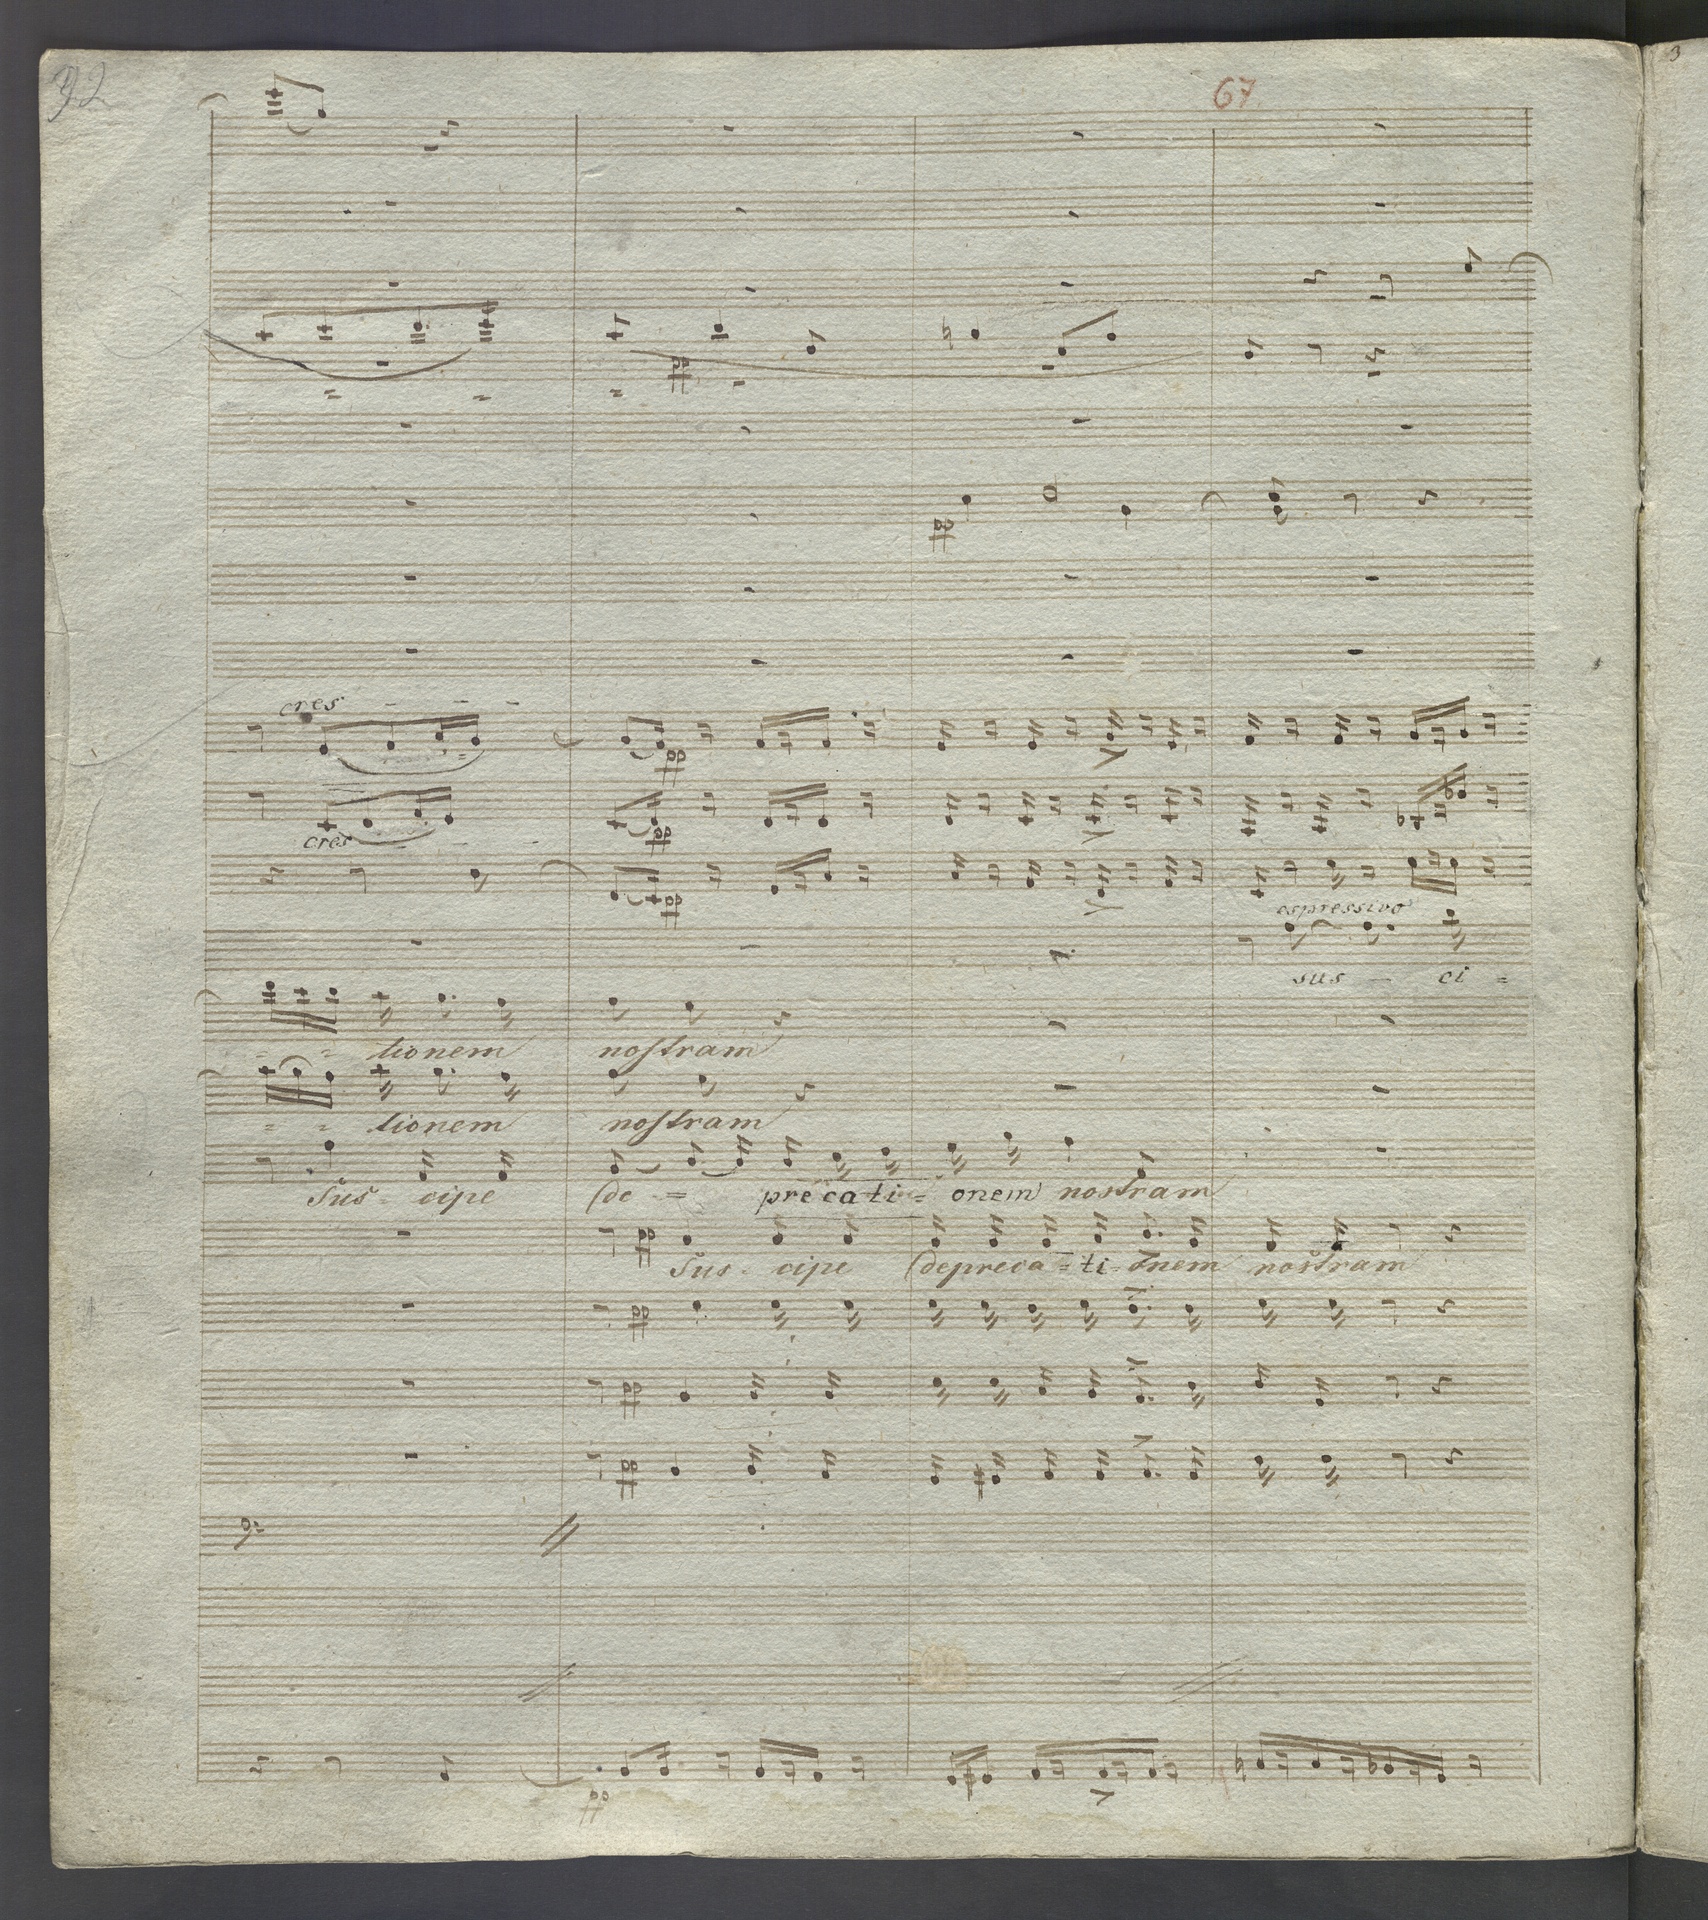 92
67
pp
pp
cres - - -
pp
pp
cres - - -
pp
espressivo
sus - ci =
= = tionem noſtram
= = tionem noſtram
Sus - cipe de = precati = onem nostram
pp
Sus - cipe depreca = ti - onem nostram
pp
pp
pp
pp
3